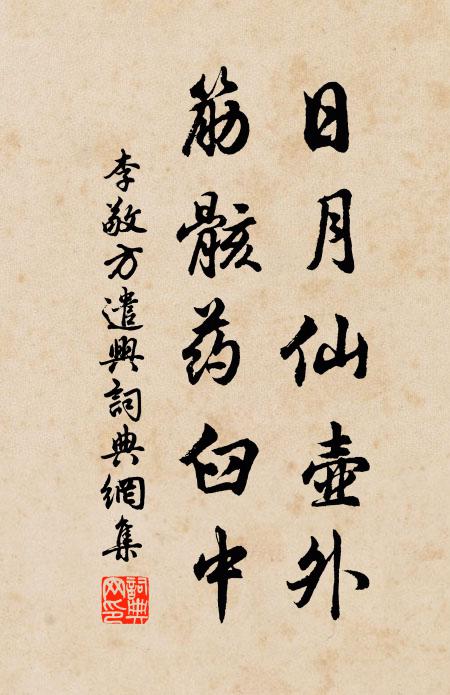 日月仙壺外
筋骸药臼中
李敬方遣興詞典網集
詞典網印